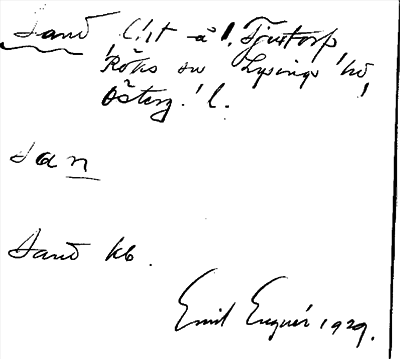 Sand list å l. Tjustorp,
Röks sn Lysings hd,
Österg. l.
san
Sand kb.
Emil Enquér 1929.